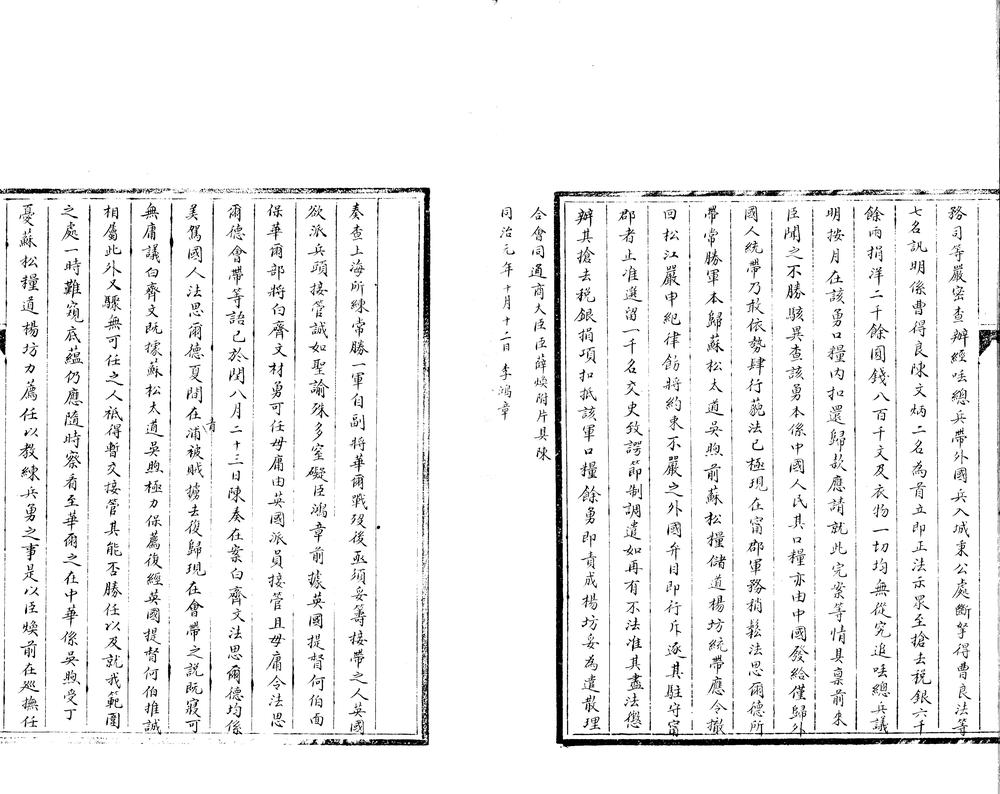 務司等嚴密查辦經呿總兵帶外國兵入城秉公處斷拏得曹良法等
七名訊明係曹得良陳文炳二名為首立即正法示眾至搶去税銀六千
餘兩捐洋二千餘圓錢八百千文及衣物一切均無從究追呿總兵議
明按月在該勇口糧內扣還歸欵應請就此完案等情具稟前來
臣聞之不勝駭異查該勇本係中國人民其口糧亦由中國發給僅歸外
國人統帶乃敢依勢肆行藐法已極現在甯郡軍務稍鬆法思爾德所
帶常勝軍本歸蘇松太道吳煦前蘇松糧儲道楊坊統帶應令撤
回松江嚴申紀律飭將約束不嚴之外國弁目即行斥逐其駐守甯
郡者止准選留一千名交史致諤節制調遣如再有不法准其盡法懲
辦其搶去税銀捐項扣抵該軍口糧餘勇即責成楊坊妥為遣散理
合會同通商大臣臣薛煥附片具陳
同治元年十月十二日 李鴻章
奏查上海所練常勝一軍自副將華爾戰歿後亟須妥籌接帶之人英國
欲派兵頭接管誠如聖諭殊多窒礙臣鴻章前據英國提督何伯面
保華爾部將白齊文材勇可任毋庸由英國派員接管且毋庸令法思
爾德會帶等語已於閏八月二十三日陳奏在案白齊文法思爾德均係
美駕國人法思爾德夏間在青浦被賊擄去復歸現在會帶之説既寢可
無庸議白齊文既據蘇松太道吳煦極力保薦復經英國提督何伯推誠
相屬此外又驟無可任之人祇得暫交接管其能否勝任以及就我範圍
之處一時難窺底蘊仍應隨時察看至華爾之在中華係吳煦受丁
憂蘇松糧道楊坊力薦任以教練兵勇之事是以臣煥前在巡撫任